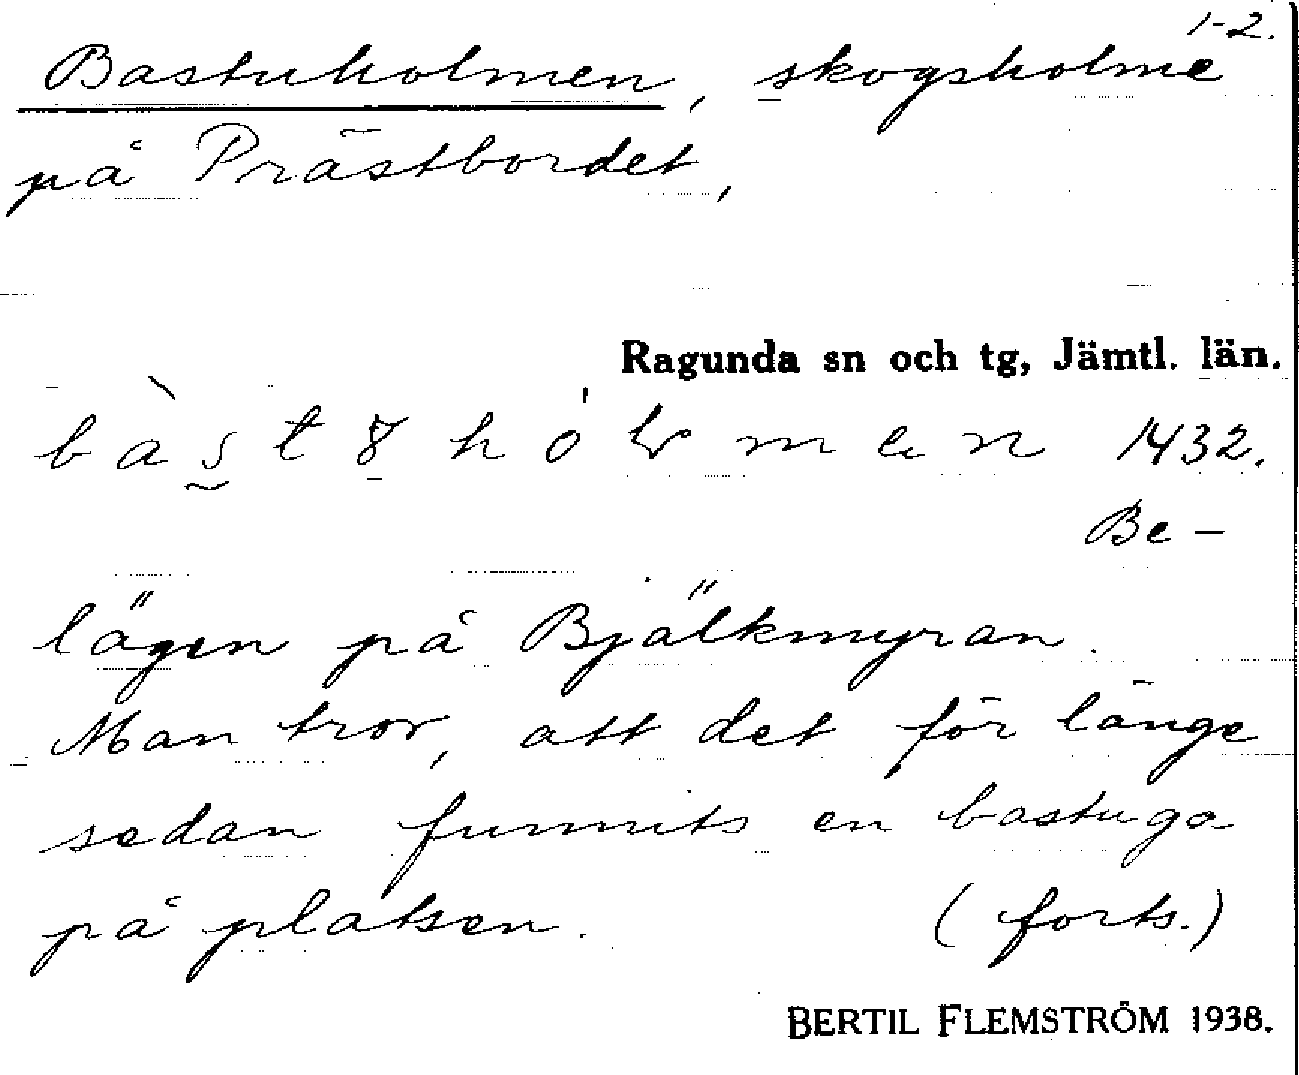 1-2.
Bastuholmen, skogsholme
på Prästbordet,
Ragunda sn och tg, Jämtl. län.
1432.
Be-
lägen på Bjälkmyran.
Man tror, att det för länge
sedan funnits en bastuga
på platsen. (forts.)
BERTIL FLEMSTRÖM 1938.